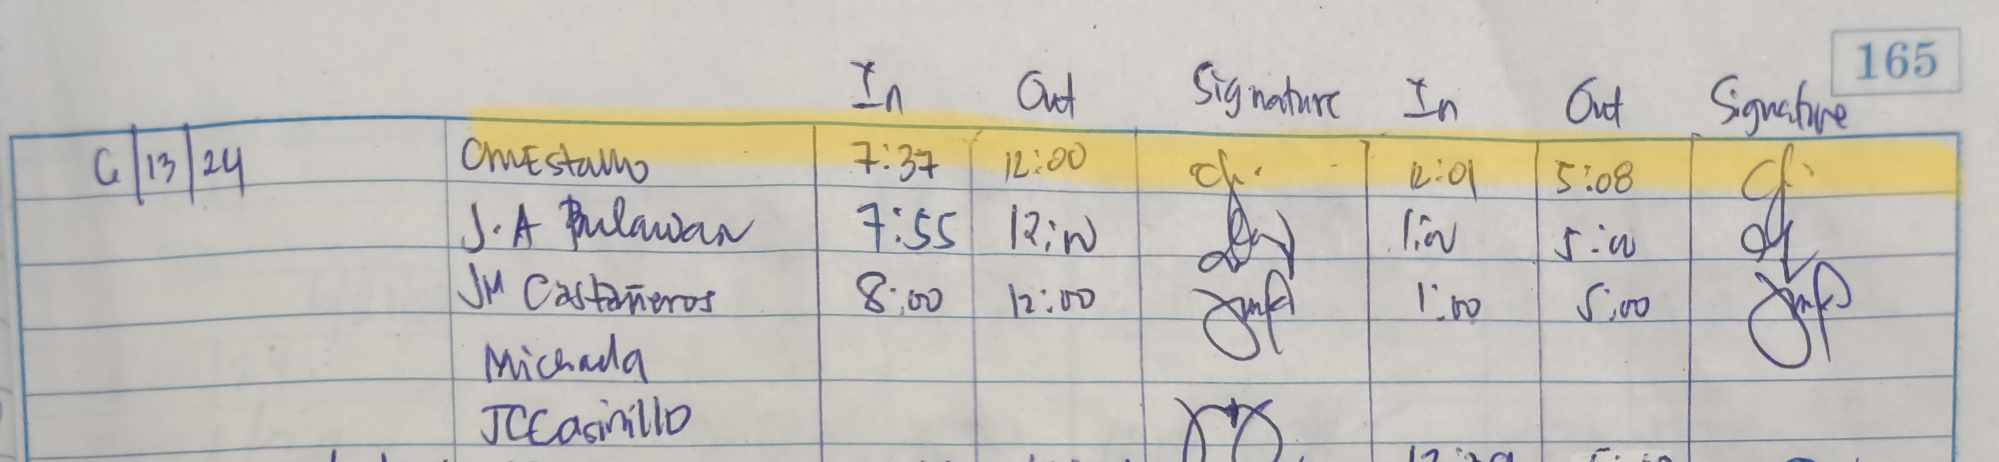 165
In Out Signature In Out Signature
6/13/24 CMEstallo 7:37 12:00 12:01 5:08
J.A Bulawan 7:55 12:00 1:00 5:00
JM Castañeros 8:00 12:00 1:00 5:00
Michada
JCCasinillo